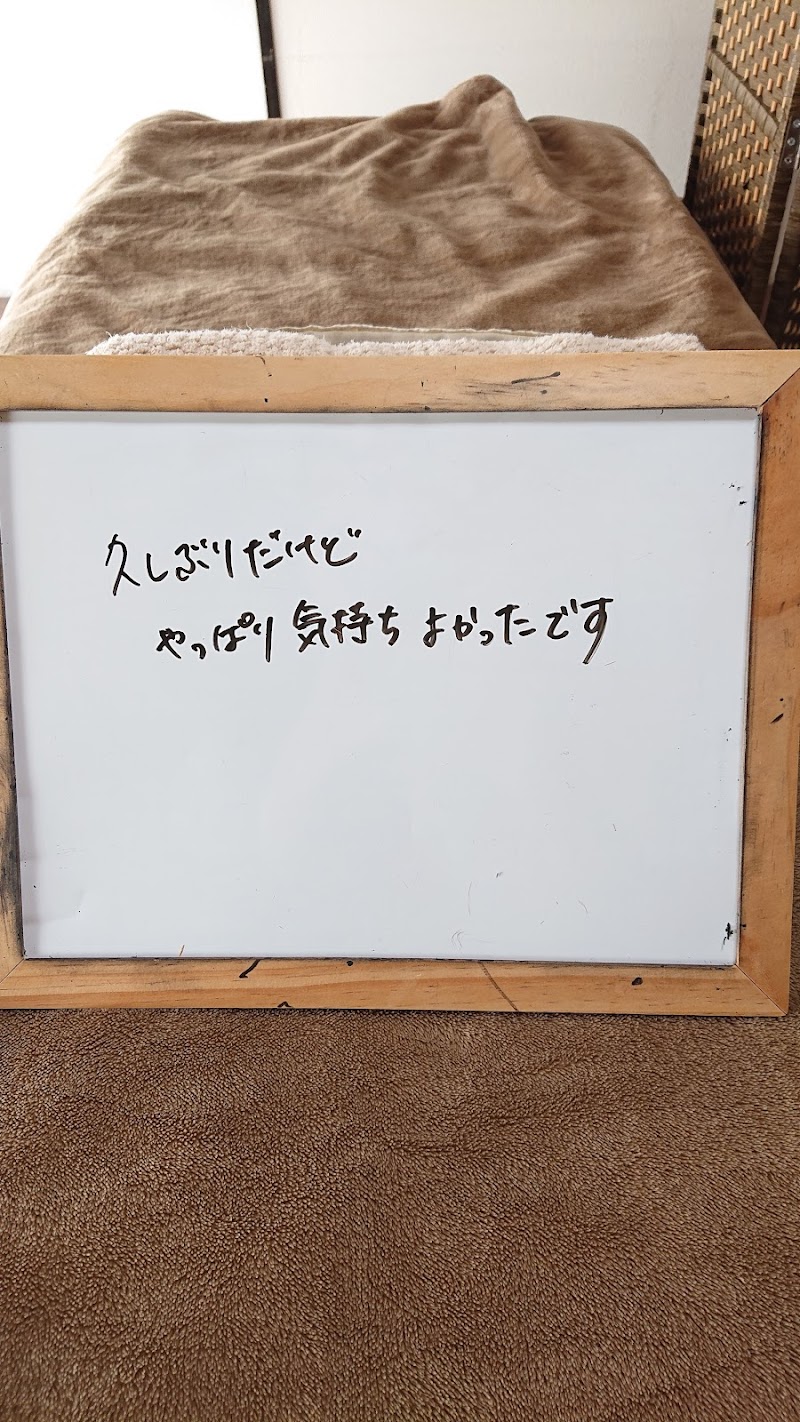 久しぶりだけど
やっぱり気持ちよかったです